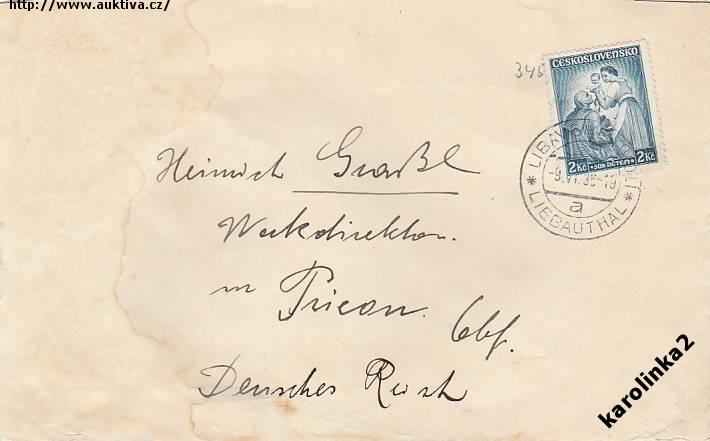 http://www.auktiva.cz/
345
ČESKOSLOVENSKO
2Kč +50h DĚTEM 2Kč
-9.VI.36-19
a
* LIEBAUTHAL *
Heinrich Graßl
Werksdirektor
in
Obf.
Deutsches Reich
karolinka2